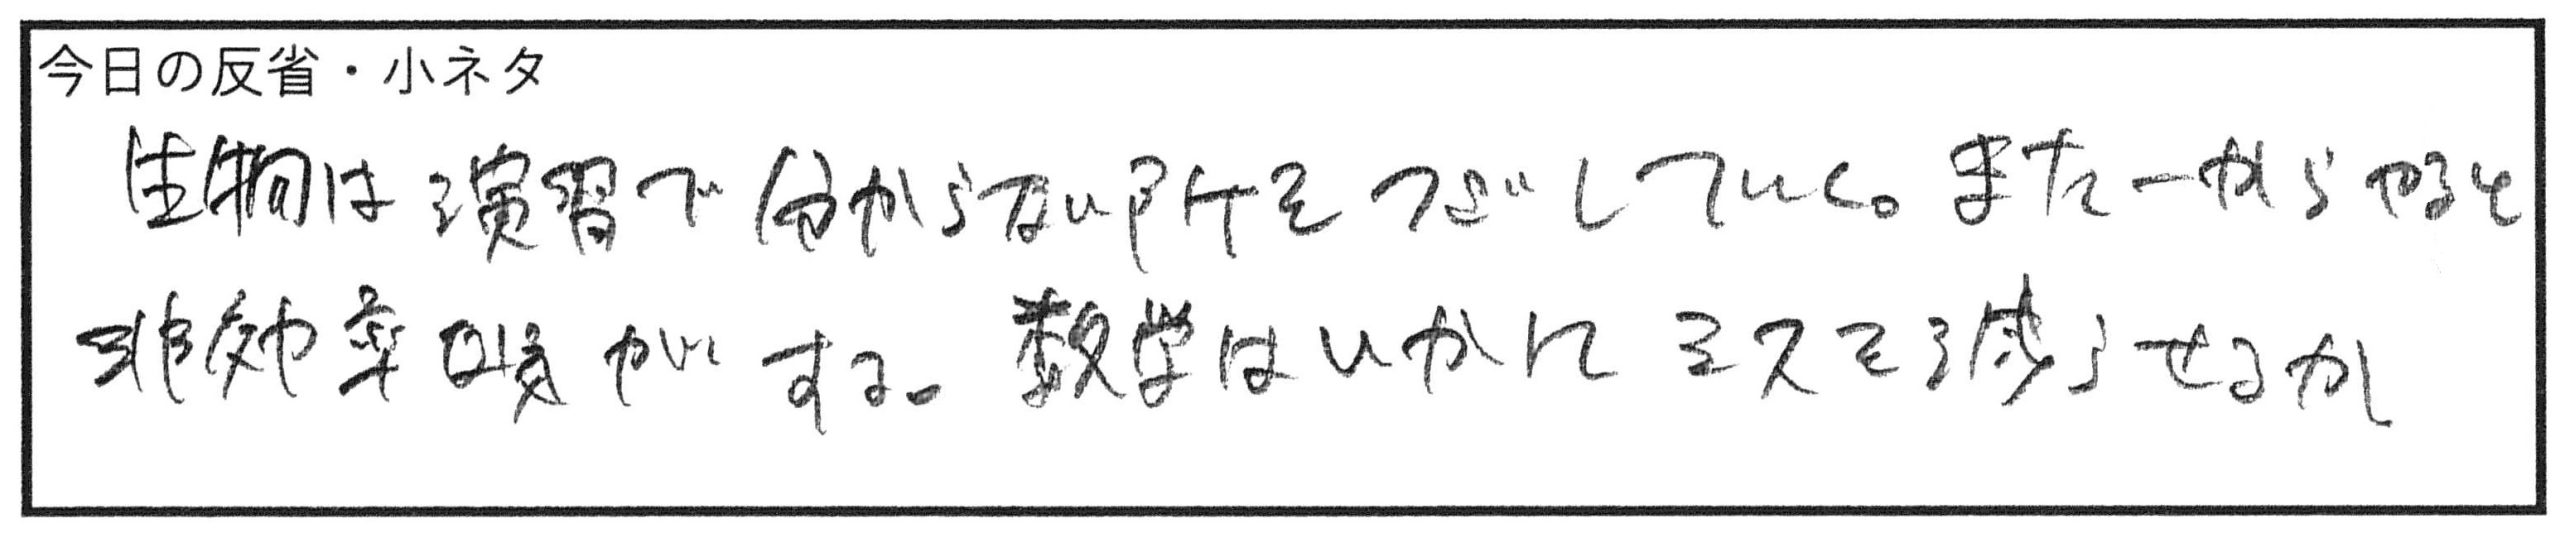 今日の反省・小ネタ
生物は演習で分からない所をつぶしていく。また一からやると
非効率な気がする。数学はいかにミスを減らせるか